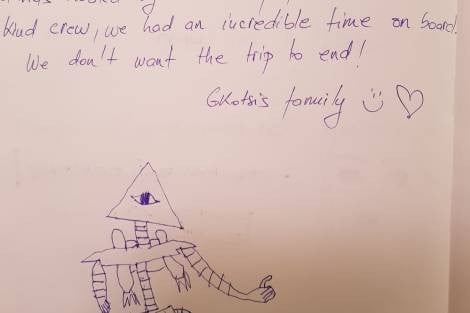 kind crew, we had an incredible time on board.
We don't want the trip to end!
Gkotsis family